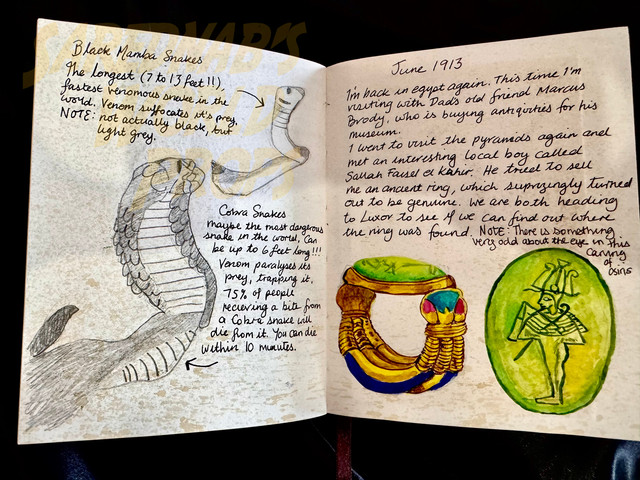 Black Mamba Snakes
The longest (7 to 13 feet!!),
fastest venomous snake in the
world. Venom suffocates it's prey,
NOTE: not actually black, but
light grey.
Cobra Snakes
maybe the most dangerous
snake in the world, Can
be up to 6 feet long!!!
Venom paralyses its
prey, trapping it,
75% of people
recieving a bite from
a Cobra snake will
die from it. You can die
within 10 minutes.
June 1913
I'm back in egypt again. This time I'm
visiting with Dad's old friend Marcus
Brody, who is buying antiquities for his
museum.
I went to visit the pyramids again and
met an interesting local boy called
Sallah Faisel el Kahir. He tried to sell
me an ancient ring, which suprizingly turned
out to be genuine. We are both heading
to Luxor to see if we can find out where
the ring was found. NOTE: There is something
very odd about the eye in this
Carving
of
osiris